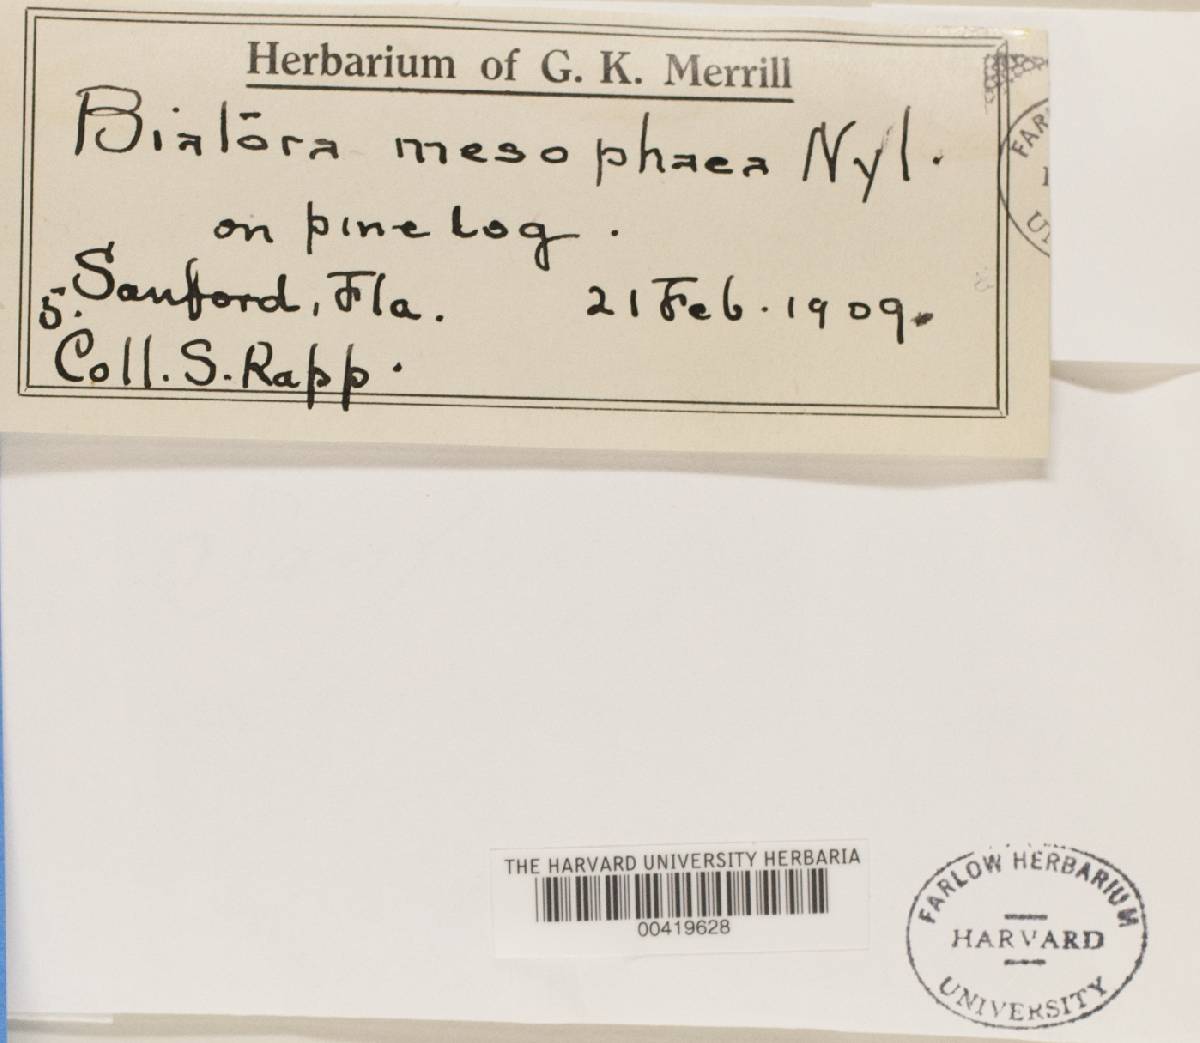 Herbarium of G. K. Merrill
Biatōra mesophaea Nyl.
on pine log.
5. Sanford, Fla. 21 Feb. 1909.
Coll. S. Rapp.
FAR
THE HARVARD UNIVERSITY HERBARIA
00419628
FARLOW HERBARIUM
HARVARD
UNIVERSITY